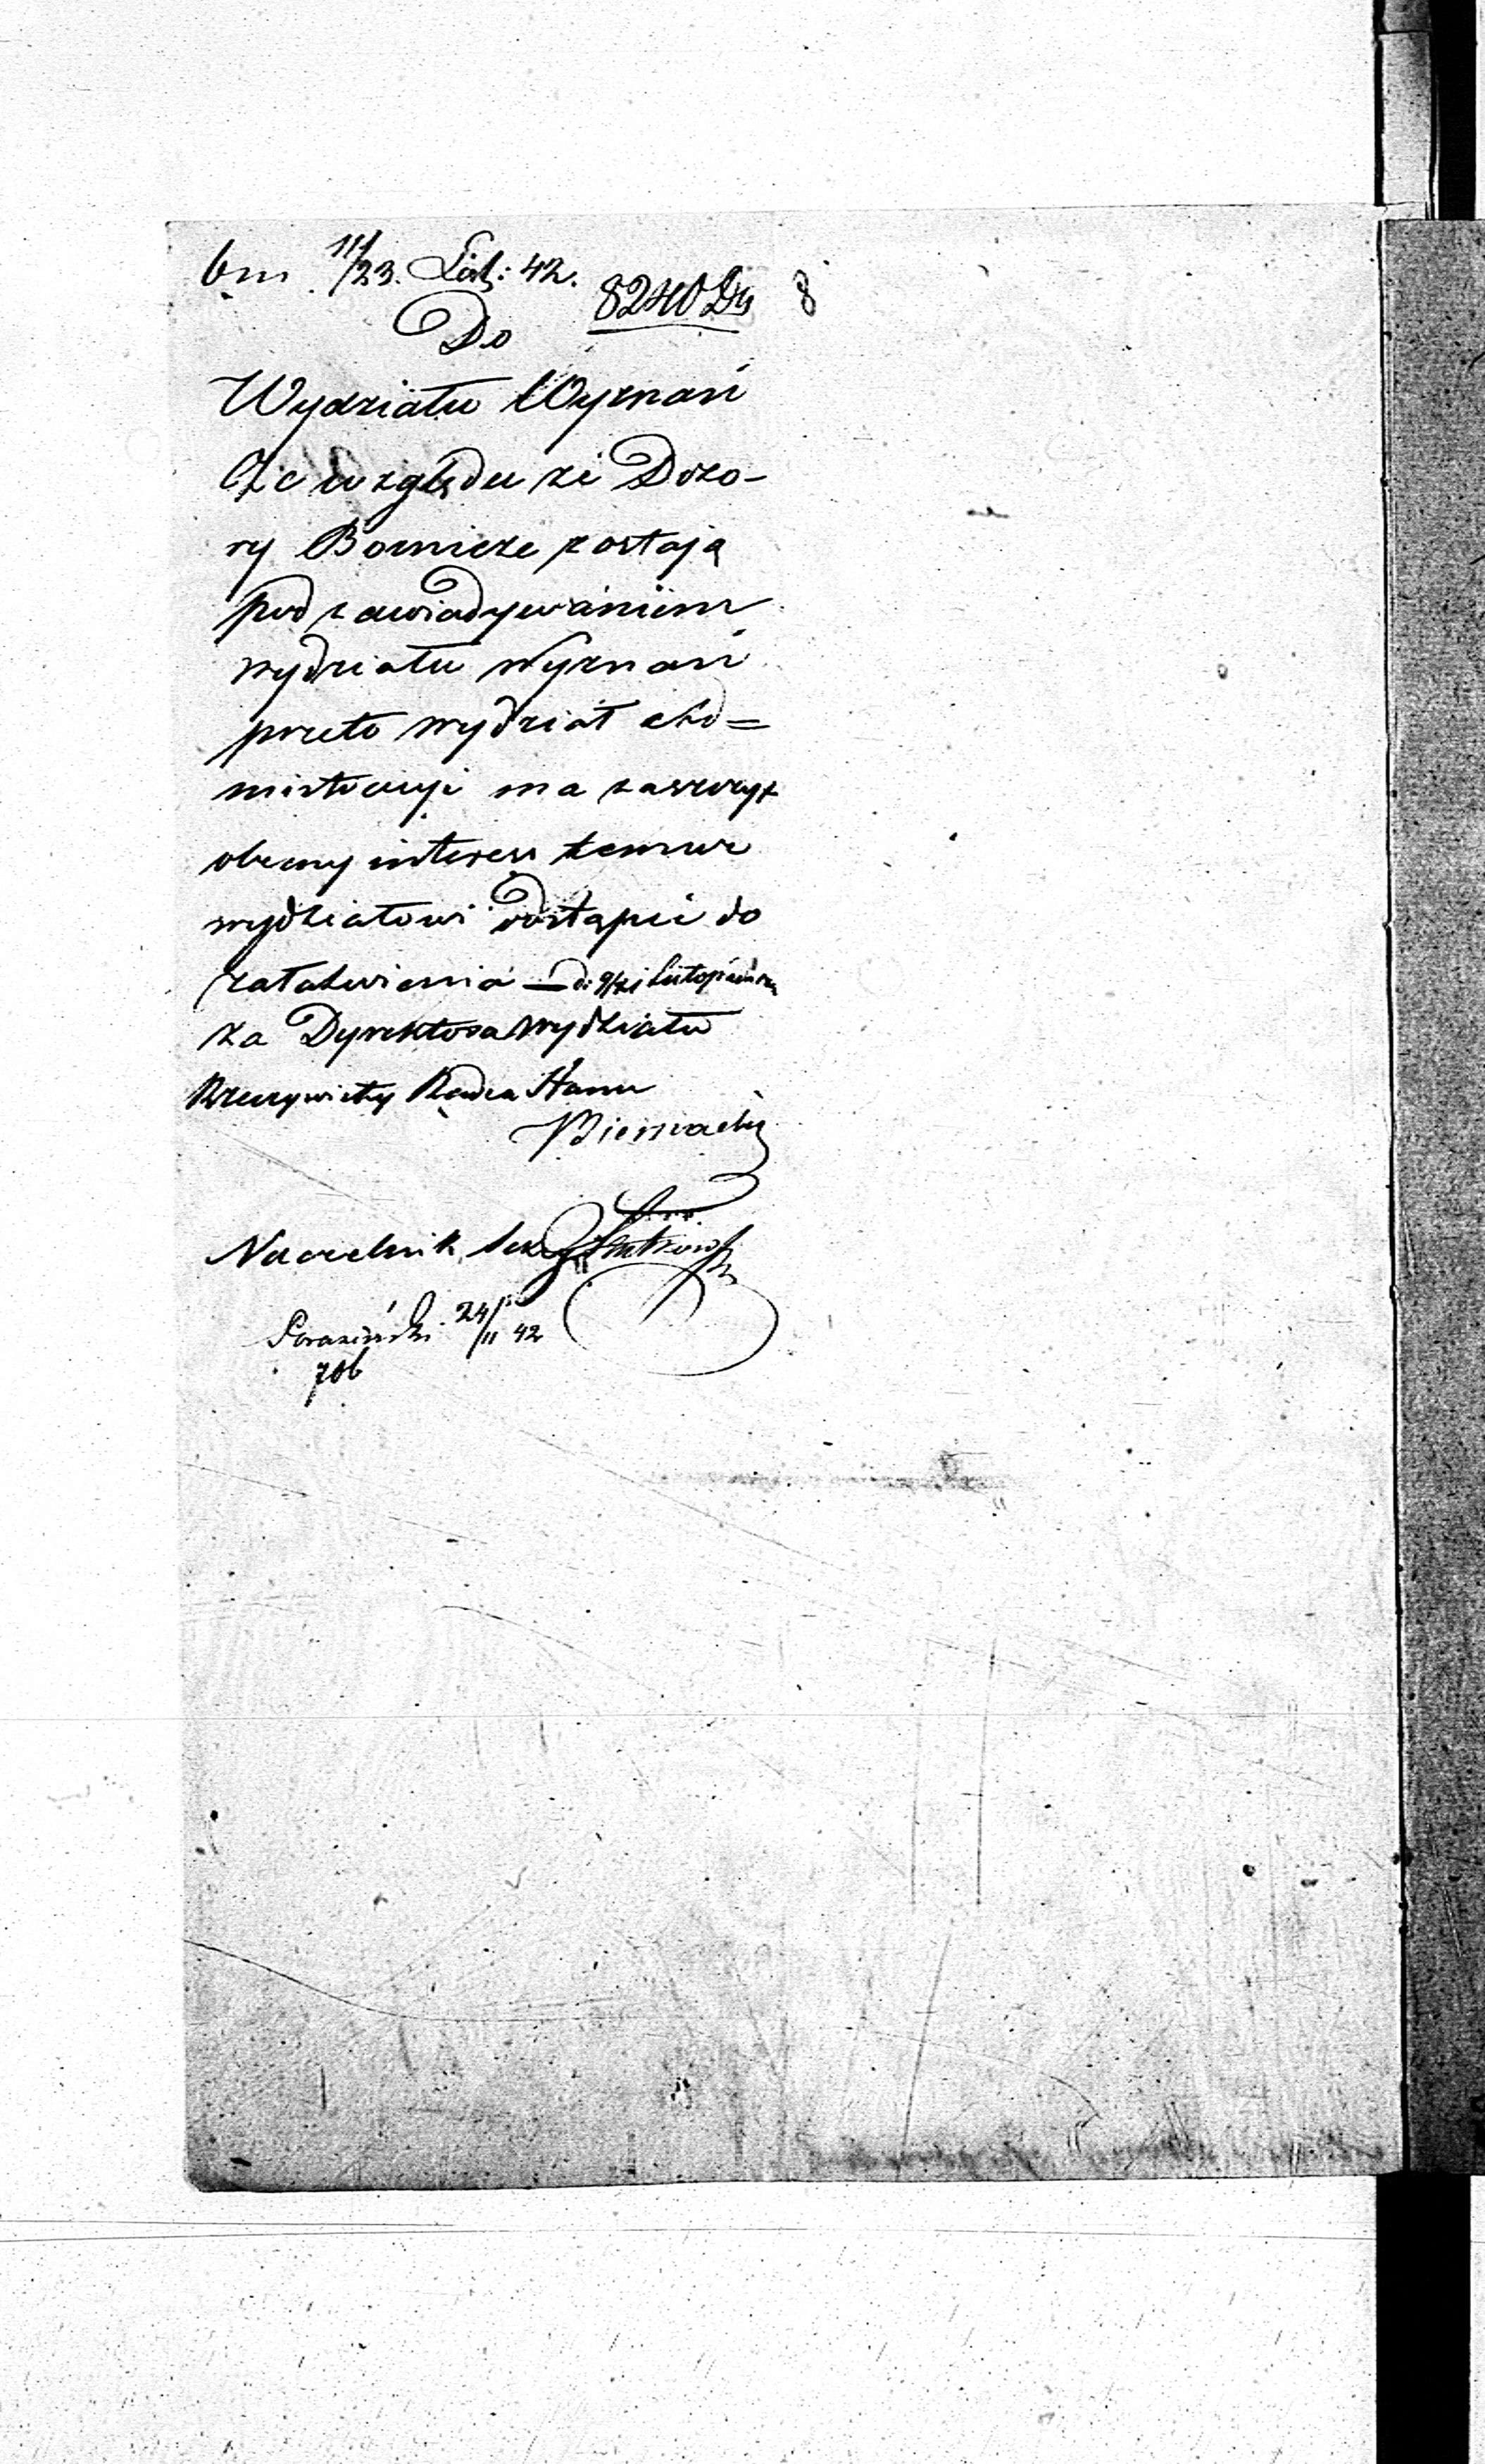 11/23. List: 42.
8240 8
Do
Wydziału Wyznań
Ze względu że Dozo-
ry Bożnicze zostają
pod zawiadywaniem
wydziału Wyznań
przeto wydział Ad=
ministracyji ma zaszczyt
obecny interess temuż
wydziałowi odstąpić do
załatwienia — d: 9/21 Listopada
za Dyrektora Wydziału
Rzeczywisty Radca Stanu
Naczelnik Sekcyi
24/11 42
706